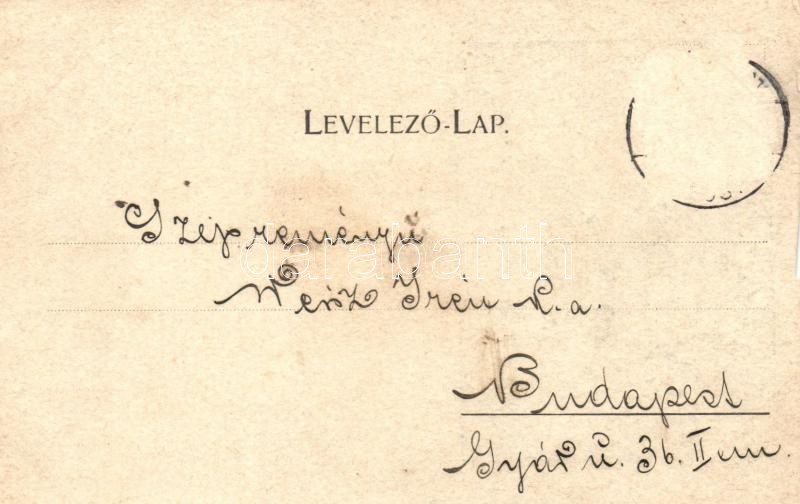 LEVELEZŐ-LAP.
Szépreményű
darabanth
Weisz Irén k.a.
Budapest
Gyár u. 36. II em.